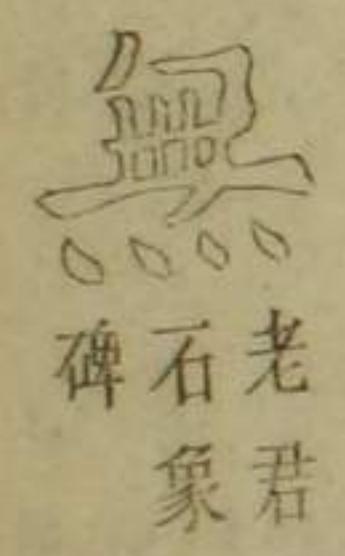 無
老君
石象
碑